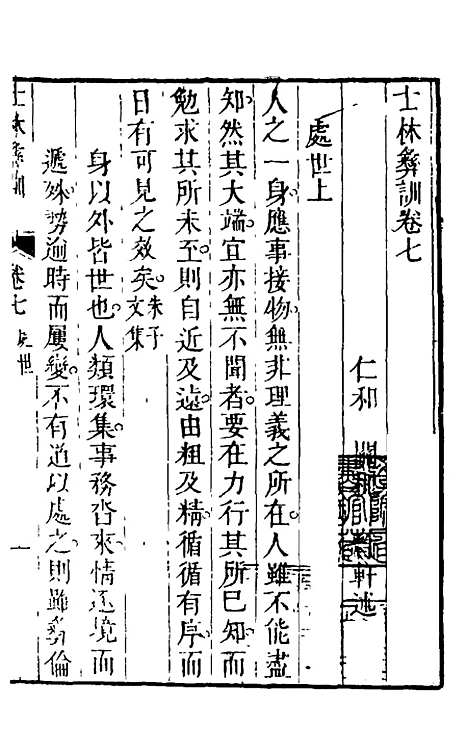 士林彝訓卷七
仁和 關 軒述
處世上
人之一身應事接物無非理義之所在人雖不能盡
知然其大端宜亦無不聞者要在力行其所已知而
勉求其所未至則自近及遠由粗及精循循有序而
日有可見之效矣朱子文集
身以外皆世也人類環集事務沓來情遷境而
遞殊勢逾時而屢變不有道以處之則雖彝倫
士林彝訓 卷七 處世 一